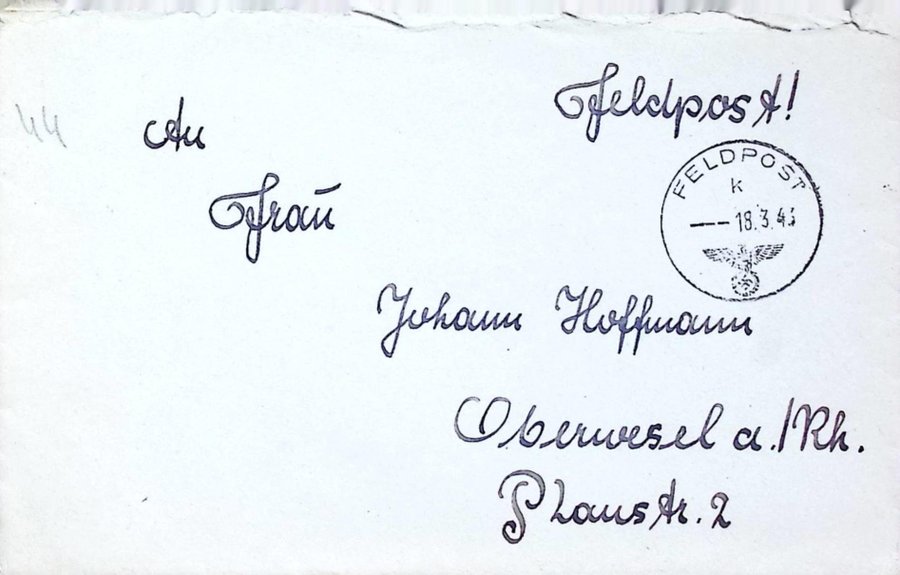 44
An
Feldpost!
Frau
FELDPOST
k
18.3.43
Johann Hoffmann
Oberwesel a./Rh.
2